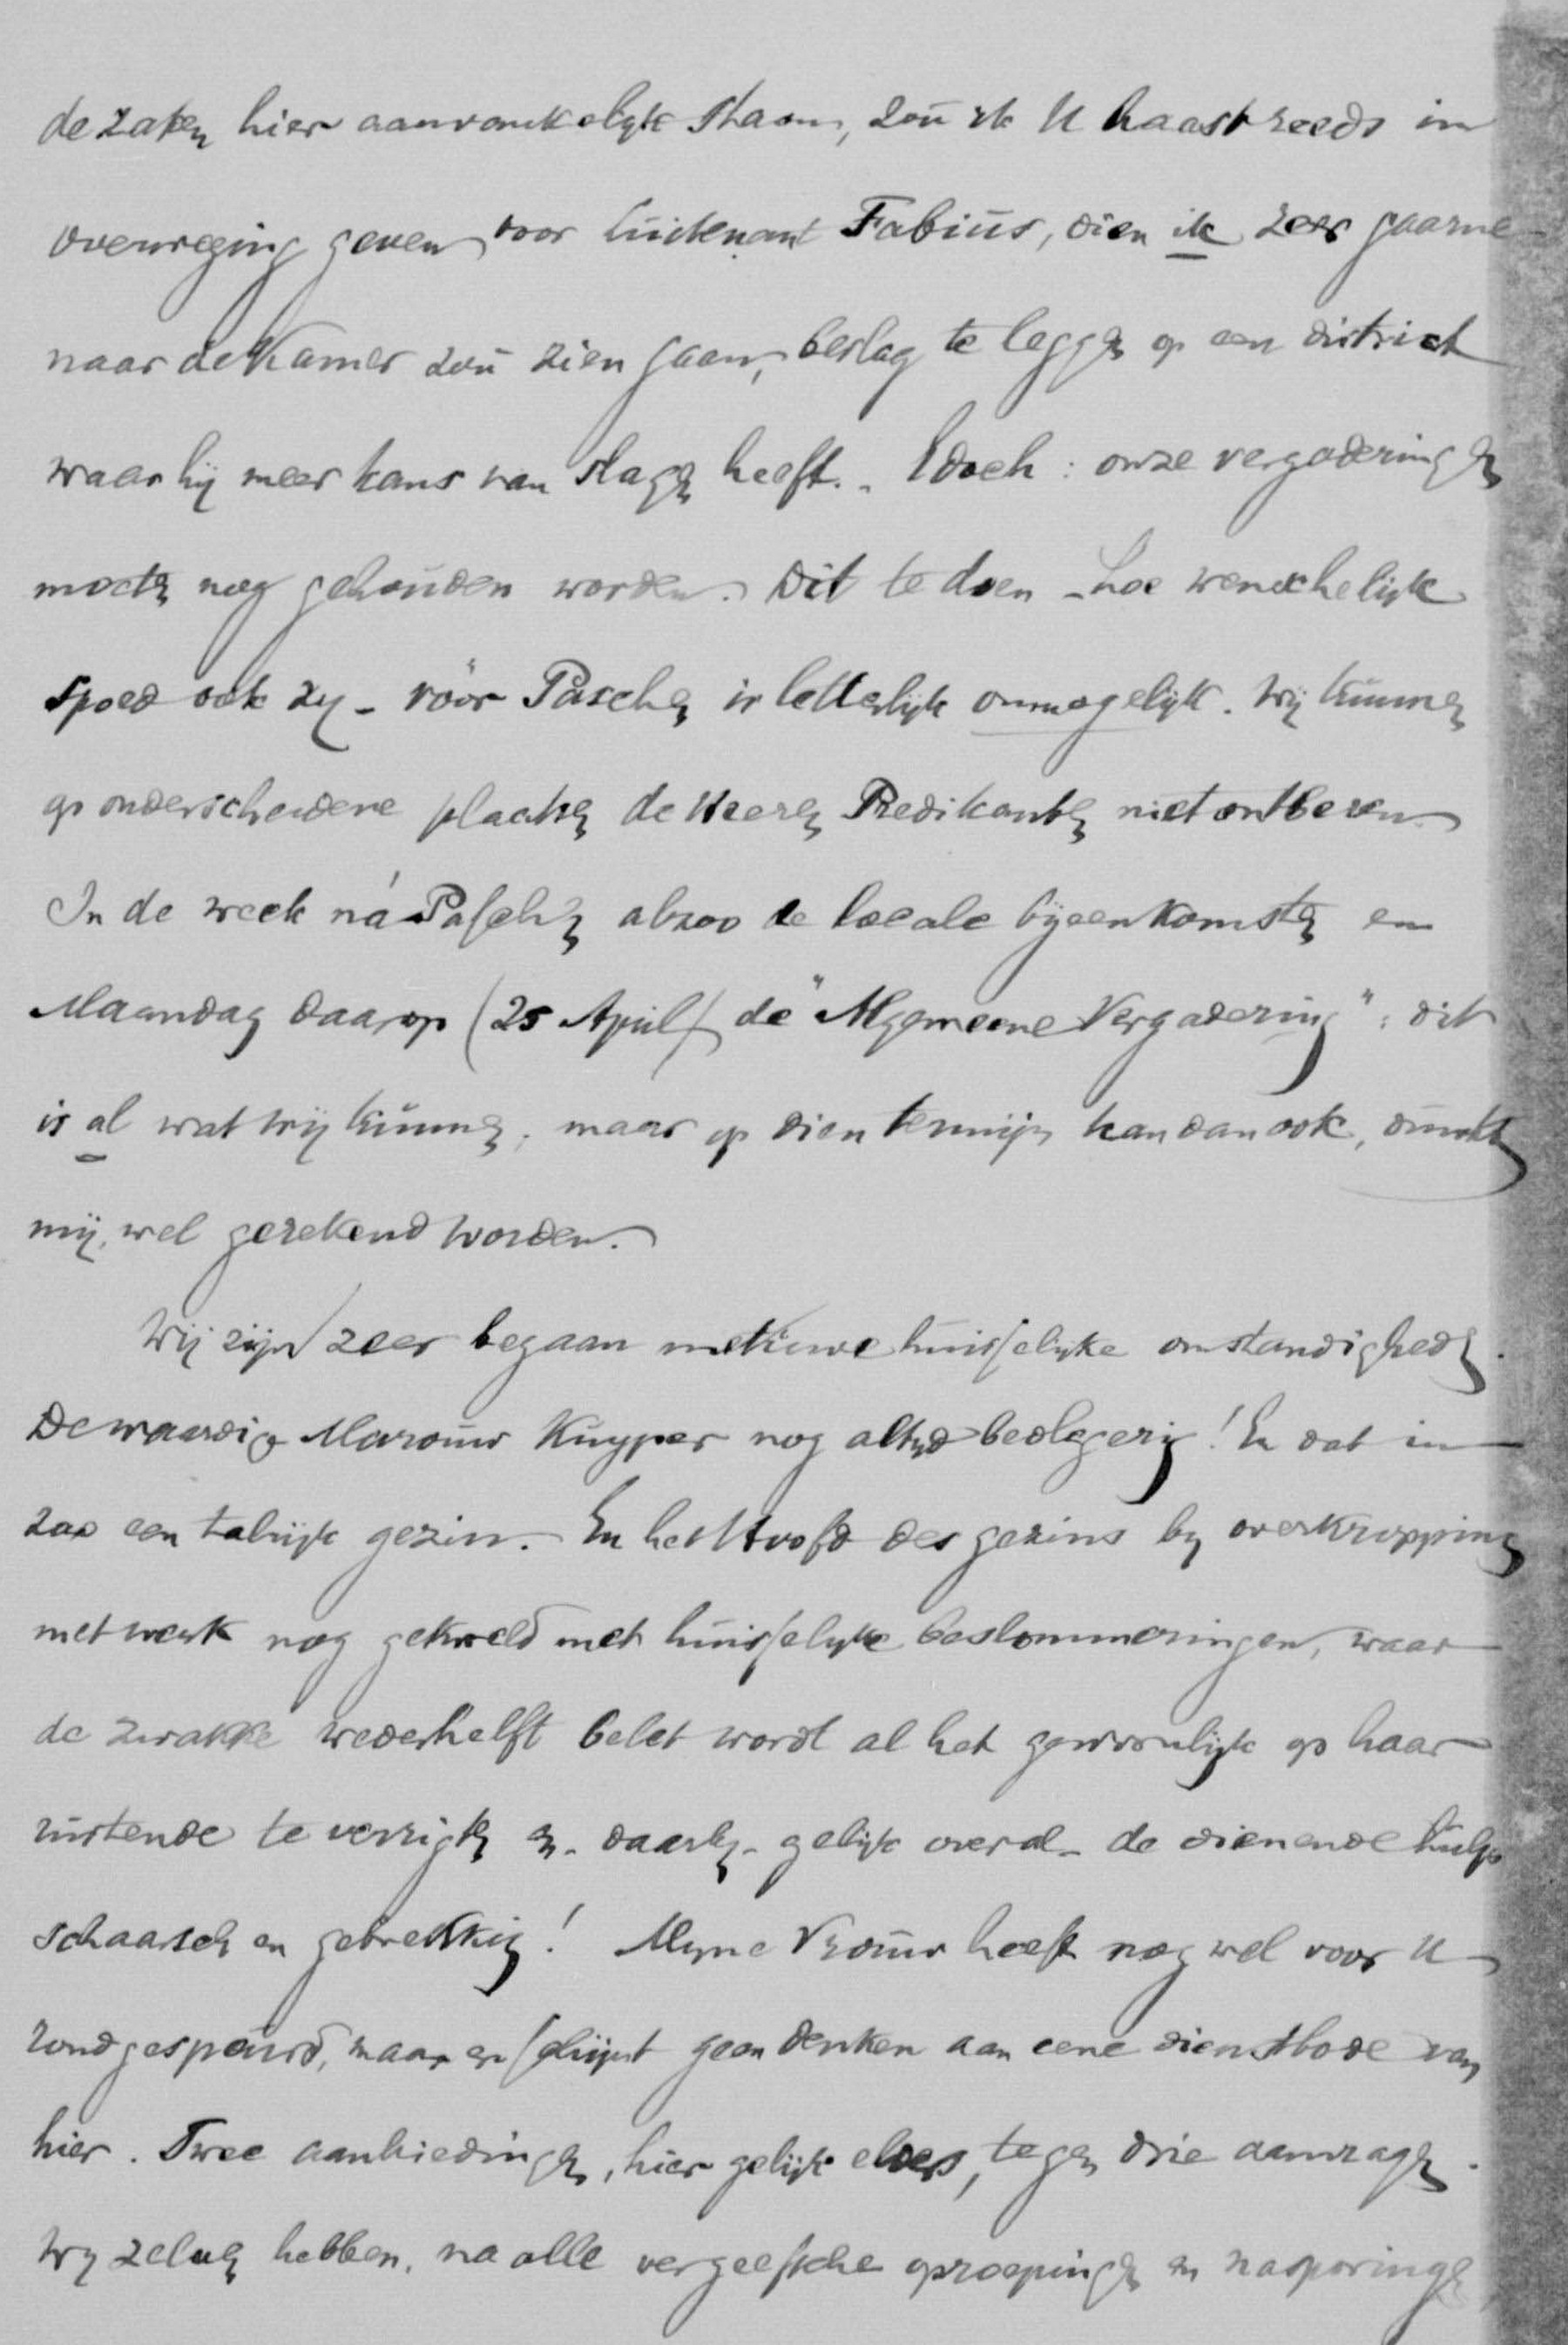 de zaken hier aanvankelijk staan, zou ik U haast reeds in
overweging geven voor luitenant Fabius, dien ik zeer gaarne
naar de Kamer zou zien gaan, beslag te leggen op een district
waar hij meer kans van slagen heeft. - Edoch: onze vergaderingen
moeten nog gehouden worden. Dit te doen - hoe wenschelijk
spoed ook zij - vóór Paschen is letterlijk onmogelijk. Wij kunnen
op onderscheidene plaatsen de Heeren Predikanten niet ontberen.
In de week ná Paschen alzoo de locale bijeenkomsten en
Maandag daarop (25 April) de "Algemeene Vergadering": dit
is al wat wij kunnen; maar op dien termijn kan dan ook, dunkt
mij, wel gerekend worden.
Wij zijn zeer begaan met uwe huisselijke omstandigheden.
De waardige Mevrouw Kuyper nog altijd bedlegerig! En dat in
zoo een talrijk gezin. En het Hoofd des gezins bij overkropping
met werk nog gekweld met huisselijke beslommeringen, waar
de zwakke wederhelft belet wordt al het gewoonlijk op haar
rustende te verrigten en - daarbij - gelijk overal - de dienende hulp
schaarsch en gebrekkig! Mijne Vrouw heeft nog wel voor U
rondgespeurd, maar er schijnt geen denken aan eene dienstbode van
hier. Twee aanbiedingen, hier gelijk elders, tegen drie aanvragen.
Wij zelven hebben, na alle vergeefsche oproepingen en nasporingen